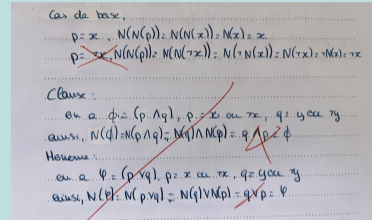 Cas de base,
p = x, N(N(p)) = N(N(x)) = N(x) = x
p = ¬x, N(N(p)) = N(N(¬x)) = N(¬N(x)) = N(¬x) = ¬N(x) = ¬x
Clause:
on a ϕ = (p ∧ q), p = x ou ¬x, q = y ou ¬y
ainsi, N(ϕ) = N(p ∧ q) = N(q) ∧ N(p) = q ∧ p = ϕ
on a φ = (p ∨ q), p = x ou ¬x, q = y ou ¬y
ainsi, N(φ) = N(p ∨ q) = N(q) ∨ N(p) = q ∨ p = φ